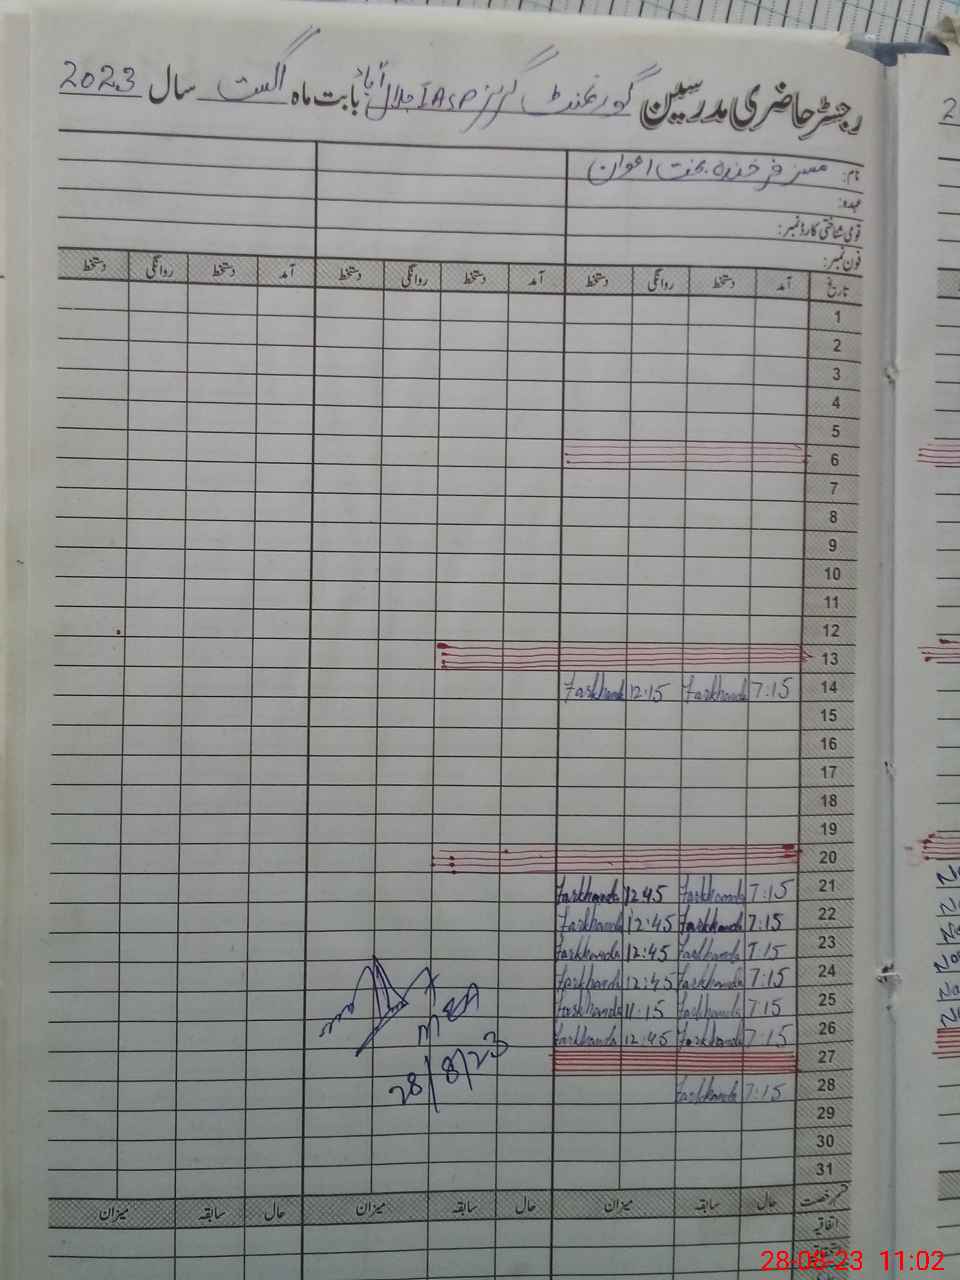 رجسٹر حاضری مدرسین گورنمنٹ گرلز جلال آباد بابت ماہ اگست سال 2023
نام: مسز فرخندہ بخت اعوان
عہدہ:
قومی شناختی کارڈ نمبر:
فون نمبر:
تاریخ آمد دستخط روانگی دستخط آمد دستخط روانگی دستخط آمد دستخط روانگی دستخط
1
2
3
4
5
6
7
8
9
10
11
12
13
14 7:15 Farkhanda 12:15 Farkhanda
15
16
17
18
19
20
21 7:15 Farkhanda 12:45 Farkhanda
22 7:15 Farkhanda 12:45 Farkhanda
23 7:15 Farkhanda 12:45 Farkhanda
24 7:15 Farkhanda 12:45 Farkhanda
25 7:15 Farkhanda 11:15 Farkhanda
26 7:15 Farkhanda 12:45 Farkhanda
27
28 7:15 Farkhanda
MEA
28/8/23
29
30
31
قسم رخصت حال سابقہ میزان حال سابقہ میزان حال سابقہ میزان
اتفاقیہ
28-08-23 11:02